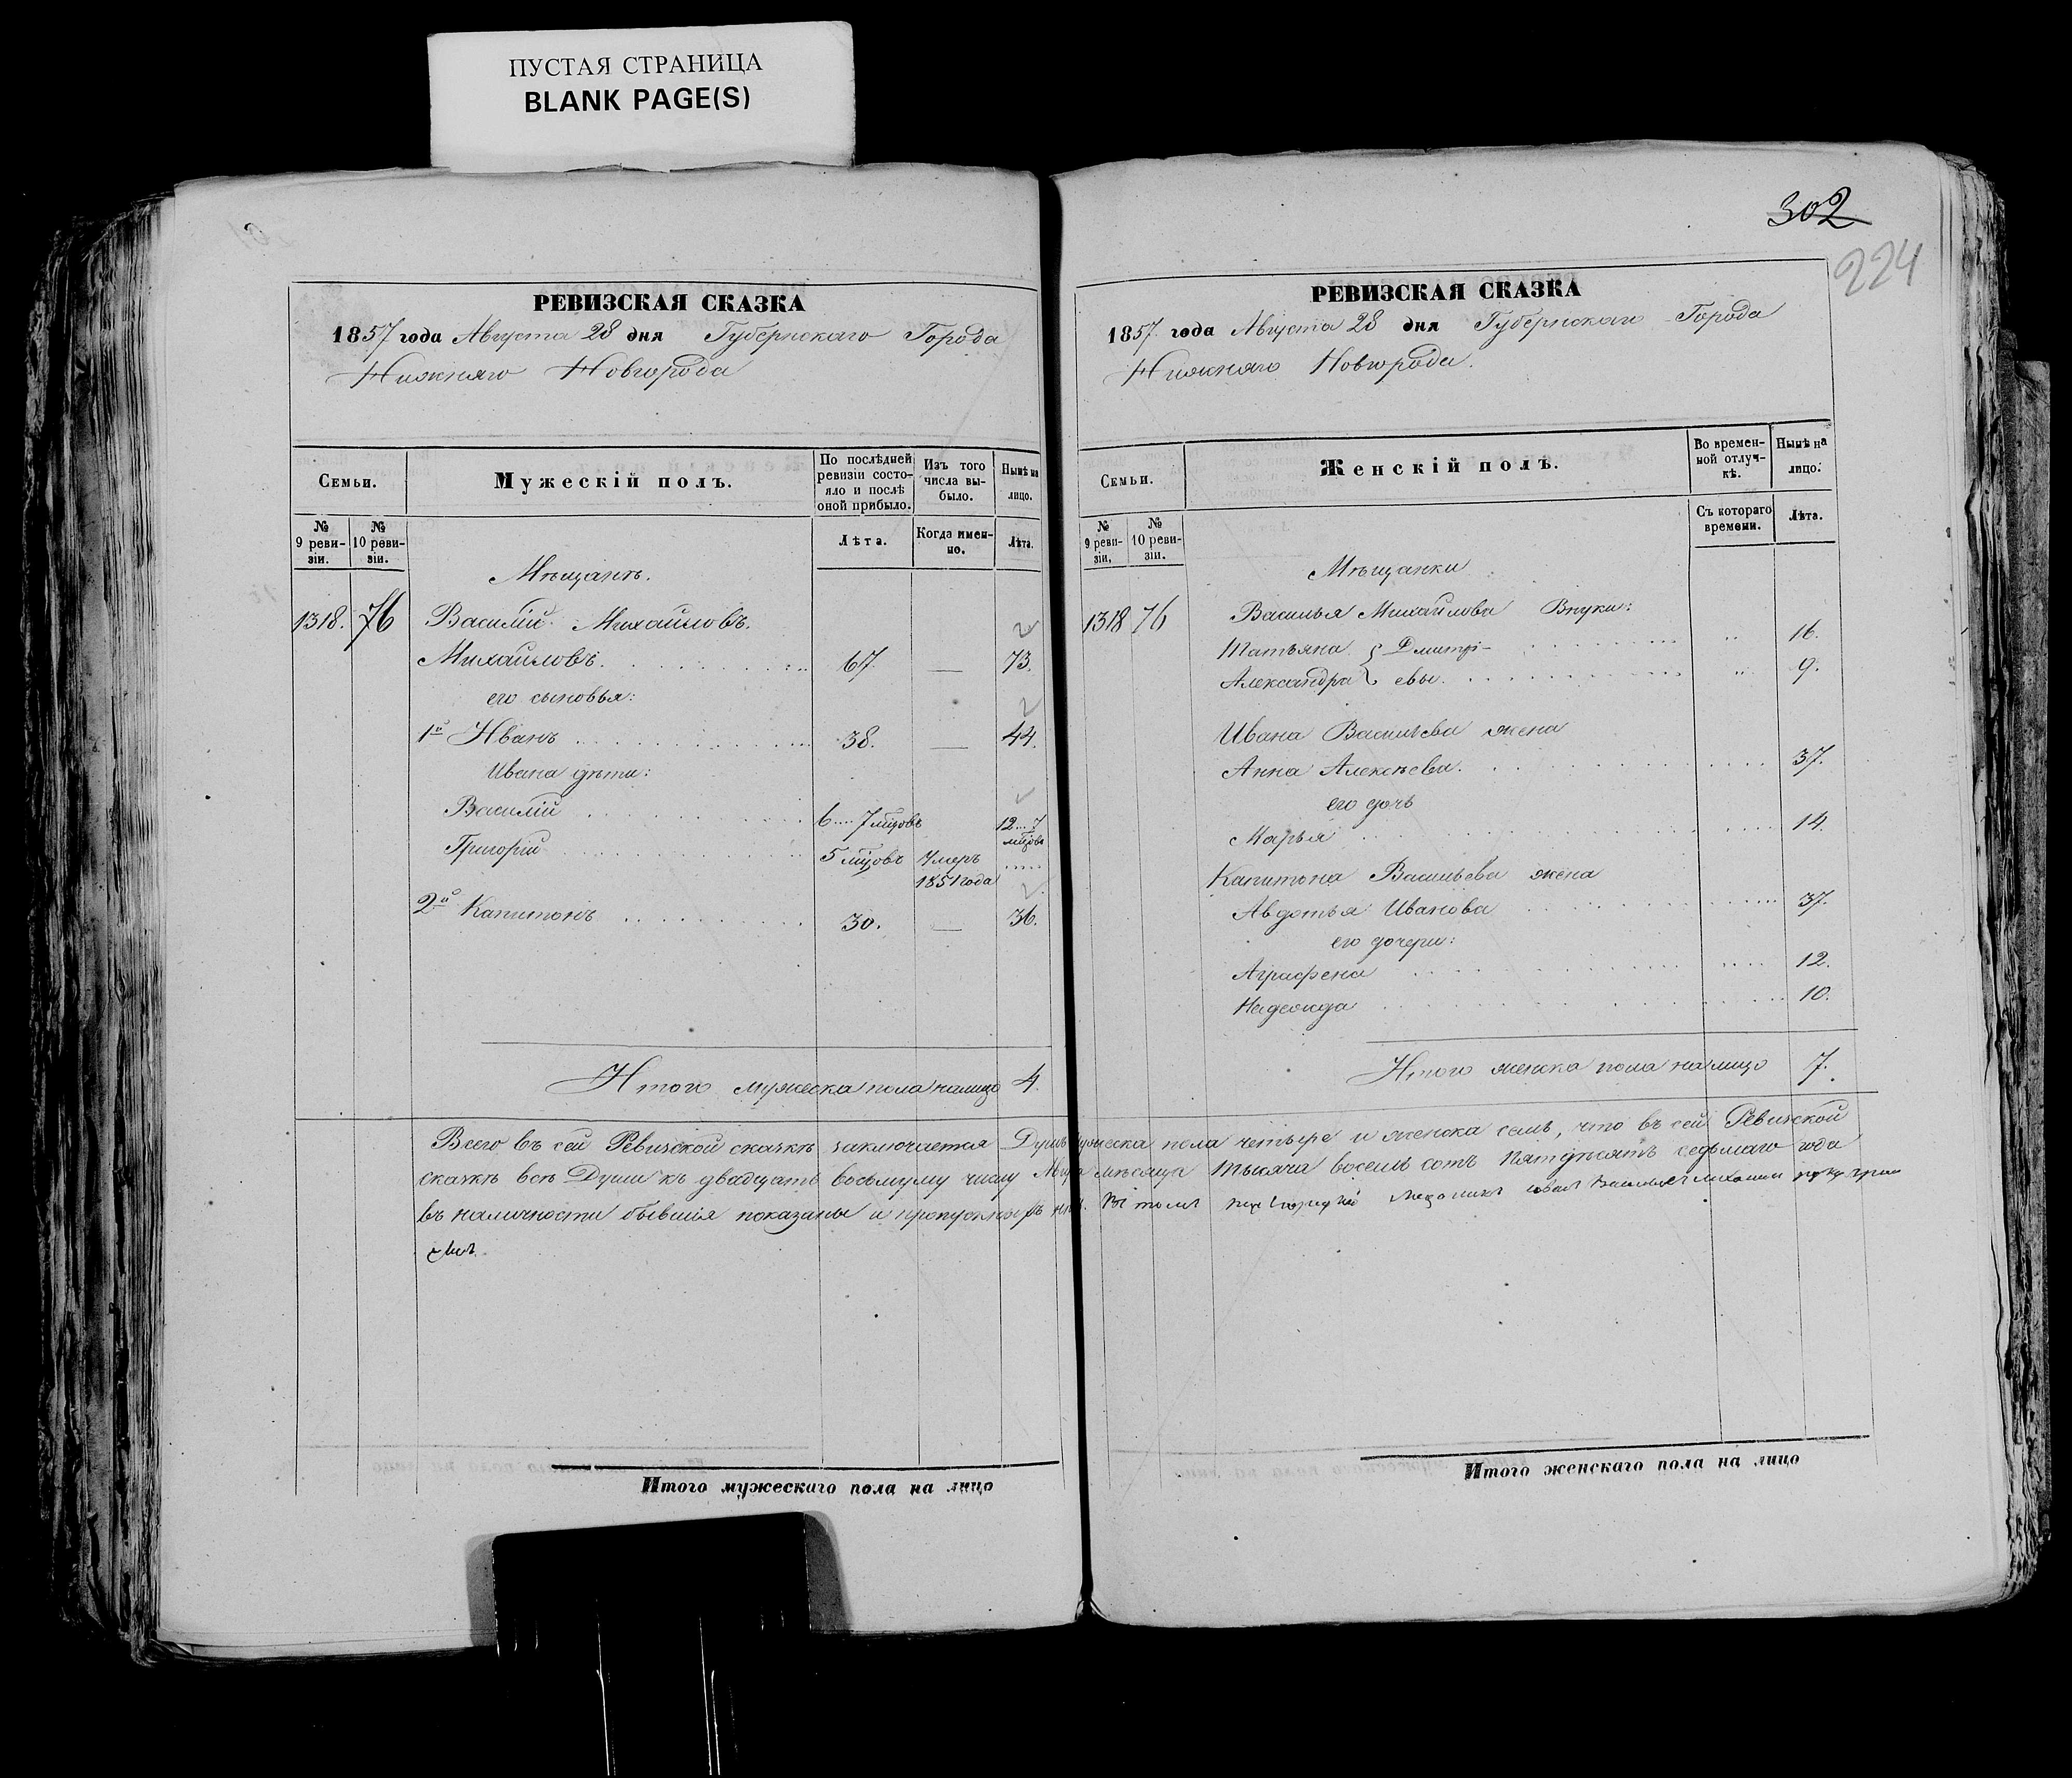 ПУСТАЯ СТРАНИЦА
BLANK PAGE(S)
РЕВИЗСКАЯ СКАЗКА
1857 года Августа 28 дня Губернскаго Города
Нижняго Новгорода
Семьи.
Мужескій полъ.
По послѣдней ревизіи состояло и послѣ оной прибыло.
Изъ того числа выбыло.
Нынѣ на лицо.
№ 9 ревизіи.
№ 10 ревизіи.
Лѣта.
Когда именно.
Лѣта.
Мѣщанъ.
1318. 76 Василій Михайловъ.
Михайловъ. 67. — 73.
его сыновья:
1й Иванъ 38. — 44.
Ивана дѣти:
Василій 6.... 7 мцовъ 12... 7 мцовъ
Григорій 5 мцовъ Умеръ
1851 года
2й Капитонъ 30. — 36.
Итого мужеска пола налицо 4.
302
224
РЕВИЗСКАЯ СКАЗКА
1857 года Августа 28 дня Губернскаго Города
Нижняго Новгорода.
Семьи.
Женскій полъ.
Во временной отлучкѣ.
Нынѣ на лицо.
№ 9 ревизіи.
№ 10 ревизіи.
Съ котораго времени.
Лѣта.
Мѣщанки
1318 76 Василья Михайлова Внуки:
Татьяна } Дмитрі- " 16.
Александра } евы. " 9.
Ивана Васильева жена
Анна Алексѣева. 37.
его дочь
Марья 14.
Капитона Васильева жена
Авдотья Иванова 37.
его дочери:
Аграфена 12.
Надежда 10.
Итого женска пола налицо 7.
Всего въ сей Ревизской сказкѣ заключается Душъ мужеска пола четыре и женска семь, что въ сей Ревизской
сказкѣ всѣ Души къ двадцать восьмому числу Августа мѣсяца тысяча восемь сотъ пятдѣсятъ седьмаго года
въ наличности бывшія показаны и пропускной нѣтъ. Въ томъ
Итого мужескаго пола на лицо
Итого женскаго пола на лицо